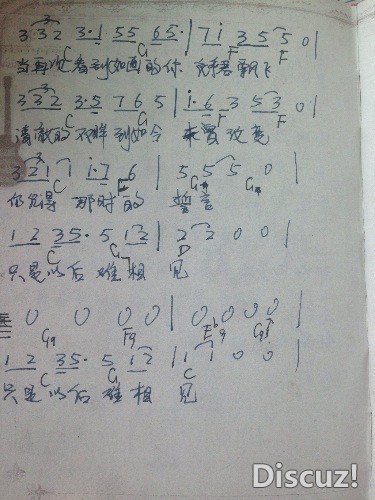 3 3 2 3·1 5 5 6 5· | 7 i 3 5 5 0 |
C G F F
当再次看到如画的你
3 3 2 3·5 7 6 5 | i·6 3 5 3 0 |
C G F F
清澈的 到如今 未曾改变
3 2 1 1 i·7 6 | 5 5 5 0 |
仍记得 那时的 誓言
1 2 3 5· 5 1 2 | 2 2 0 0 |
C G D
只是以后难相见
0 0 0 0 | 0 0 0 0 |
1 2 3 5· 5 1 2 | 1 1 0 0 |
C G C
只是以后难相见
Discuz!